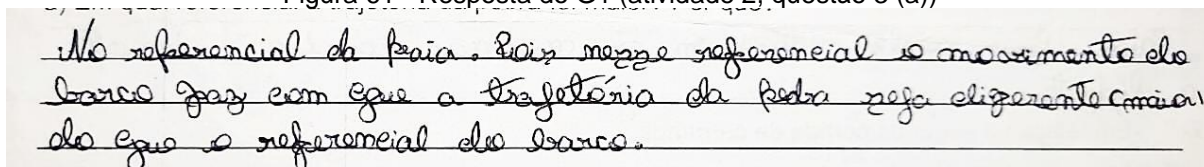 No referencial da praia. Pois nesse referencial o movimento do
barco faz com que a trajetória da pedra seja diferente (maior)
do que o referencial do barco.